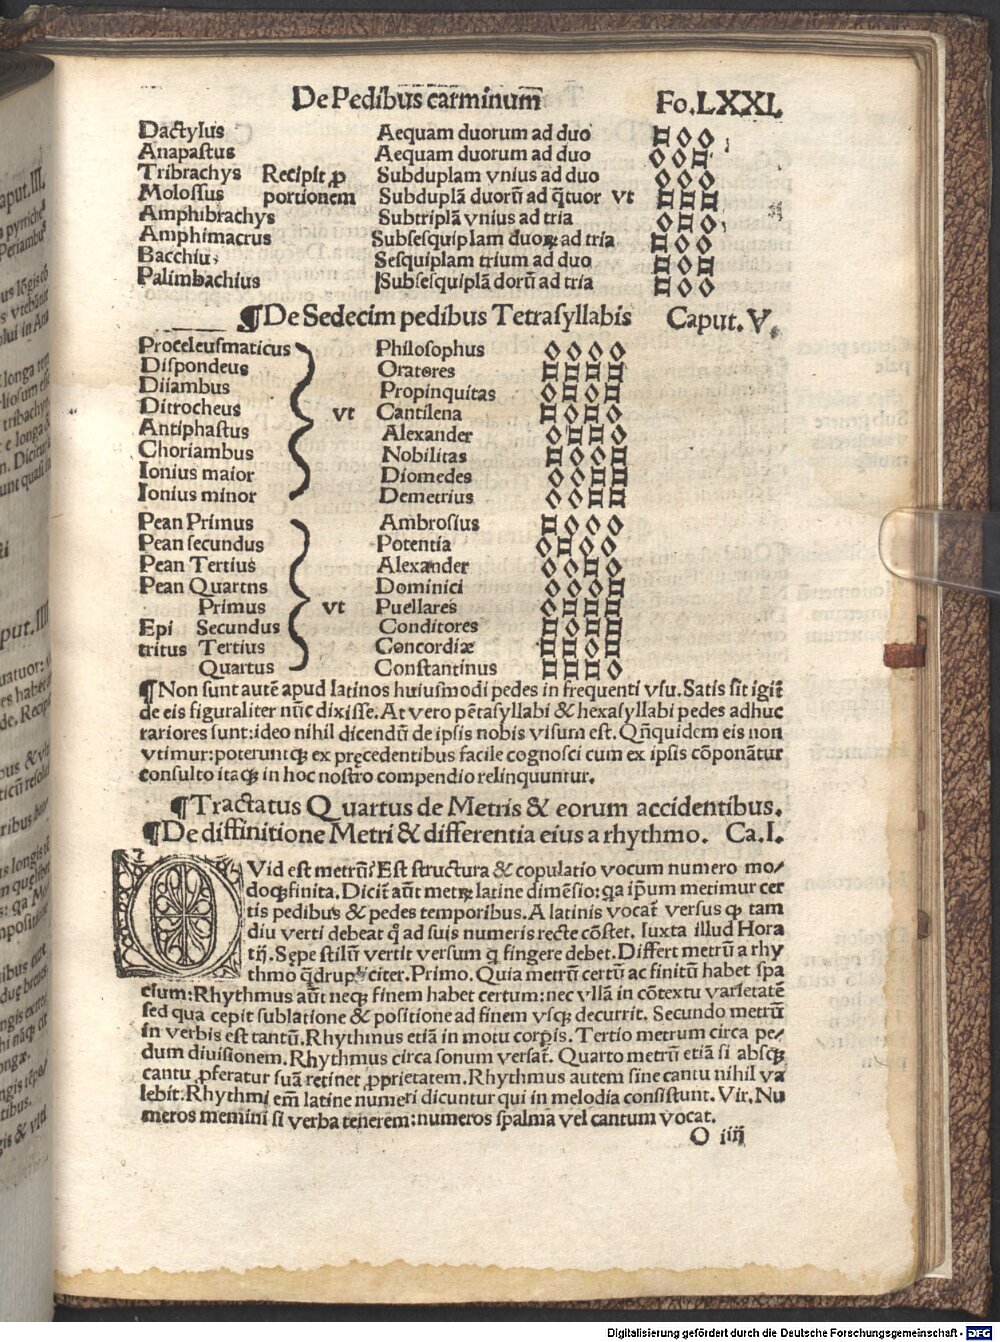 De Pedibus carminum̅ Fo. LXXI.
Dactylus Aequam duorum ad duo
Anapastus Aequam duorum ad duo
Tribrachys Recipit ꝓ Subduplam vnius ad duo
Molossus portionem Subduplā duorū ad q̄tuor vt
Amphibrachys Subtriplā vnius ad tria
Amphimacrus Subsesquiplam duoꝝ ad tria
Bacchius Sesquiplam trium ad duo
Palimbachius Subsesquiplā dorū ad tria
¶De Sedecim pedibus Tetrasyllabis Caput. V.
Proceleusmaticus Philosophus
Dispondeus Oratores
Diiambus Propinquitas
Ditrocheus vt Cantilena
Antiphastus Alexander
Choriambus Nobilitas
Ionius maior Diomedes
Ionius minor Demetrius
Pean Primus Ambrosius
Pean secundus Potentia
Pean Tertius Alexander
Pean Quartns Dominici
Primus vt Puellares
Epi Secundus Conditores
tritus Tertius Concordiæ
Quartus Constantinus
¶Non sunt autē apud latinos huiusmodi pedes in frequenti vsu. Satis sit igit̄
de eis figuraliter nūc dixisse. At vero pētasyllabi & hexasyllabi pedes adhuc
rariores sunt: ideo nihil dicendū de ipsis nobis visum est. Qn̄quidem eis non
vtimur: poteruntqȝ ex pręcedentibus facile cognosci cum ex ipsis cōponātur
consulto itaqȝ in hoc nostro compendio relinquuntur.
¶Tractatus Quartus de Metris & eorum accidentibus.
¶De diffinitione Metri & differentia eius a rhythmo. Ca. I.
QVid est metrū? Est structura & copulatio vocum numero mo/
doqȝ finita. Dicit̄ aūt metrꝝ latine dimēsio: qa ip̄um metimur cer
tis pedibus & pedes temporibus. A latinis vocat̄ versus ꝙ tam
diu verti debeat q̄ ad suis numeris recte cōstet. Iuxta illud Hora
tij. Sępe stilū vertit versum q fingere debet. Differt metrū a rhy
thmo q̄drupłr citer. Primo. Quia metrū certū ac finitū habet spa
cium: Rhythmus aūt neqȝ finem habet certum: nec vllā in cōtextu varietatē
sed qua cepit sublatione & positione ad finem vsqȝ decurrit. Secundo metrū
in verbis est tantū. Rhythmus etiā in motu corpis. Tertio metrum circa pe/
dum diuisionem. Rhythmus circa sonum versat̄. Quarto metrū etiā si absqȝ
cantu ꝓferatur suā retinet ꝓprietatem. Rhythmus autem sine cantu nihil va
lebit: Rhythmi em̄ latine numeri dicuntur qui in melodia consistunt. Vir. Nu
meros memini si verba tenerem: numeros spalma vel cantum vocat.
O iiij
Digitalisierung gefördert durch die Deutsche Forschungsgemeinschaft - DFG